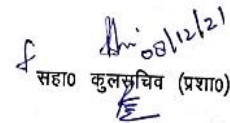 08/12/21
सहा० कुलसचिव (प्रशा०)